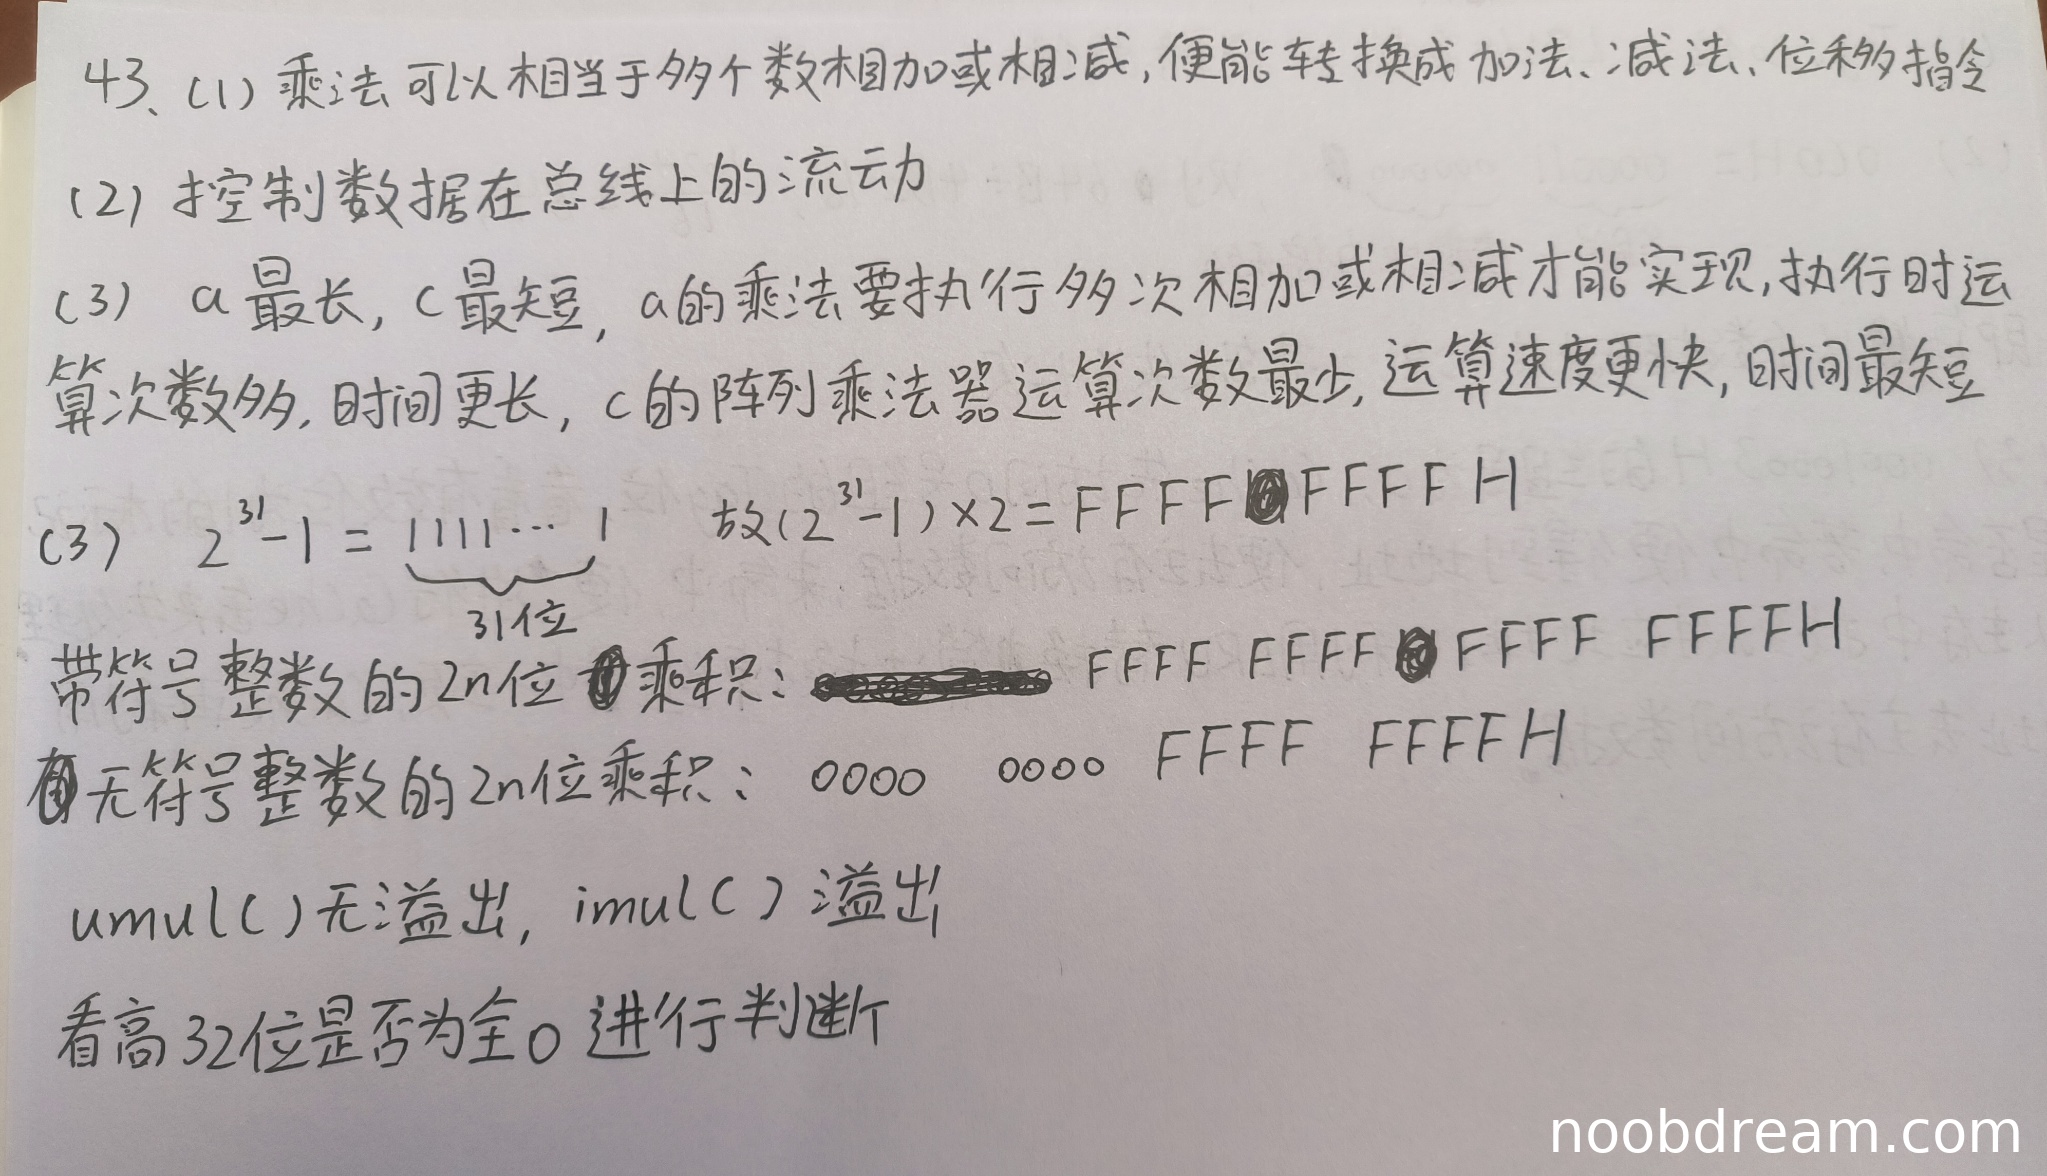 43、(1) 乘法可以相当于多个数相加或相减,便能转换成加法、减法、位移指令
(2) 控制数据在总线上的流动
(3) a最长, c最短, a的乘法要执行多次相加或相减才能实现,执行时运
算次数多,时间更长, c的阵列乘法器运算次数最少,运算速度更快,时间最短
(3) 2^31-1 = 1111…1 故(2^31-1)×2=FFFF FFFF H
31位
带符号整数的2n位乘积: FFFF FFFF FFFF FFFFH
无符号整数的2n位乘积: 0000 0000 FFFF FFFFH
umul()无溢出, imul()溢出
看高32位是否为全0进行判断
noobdream.com